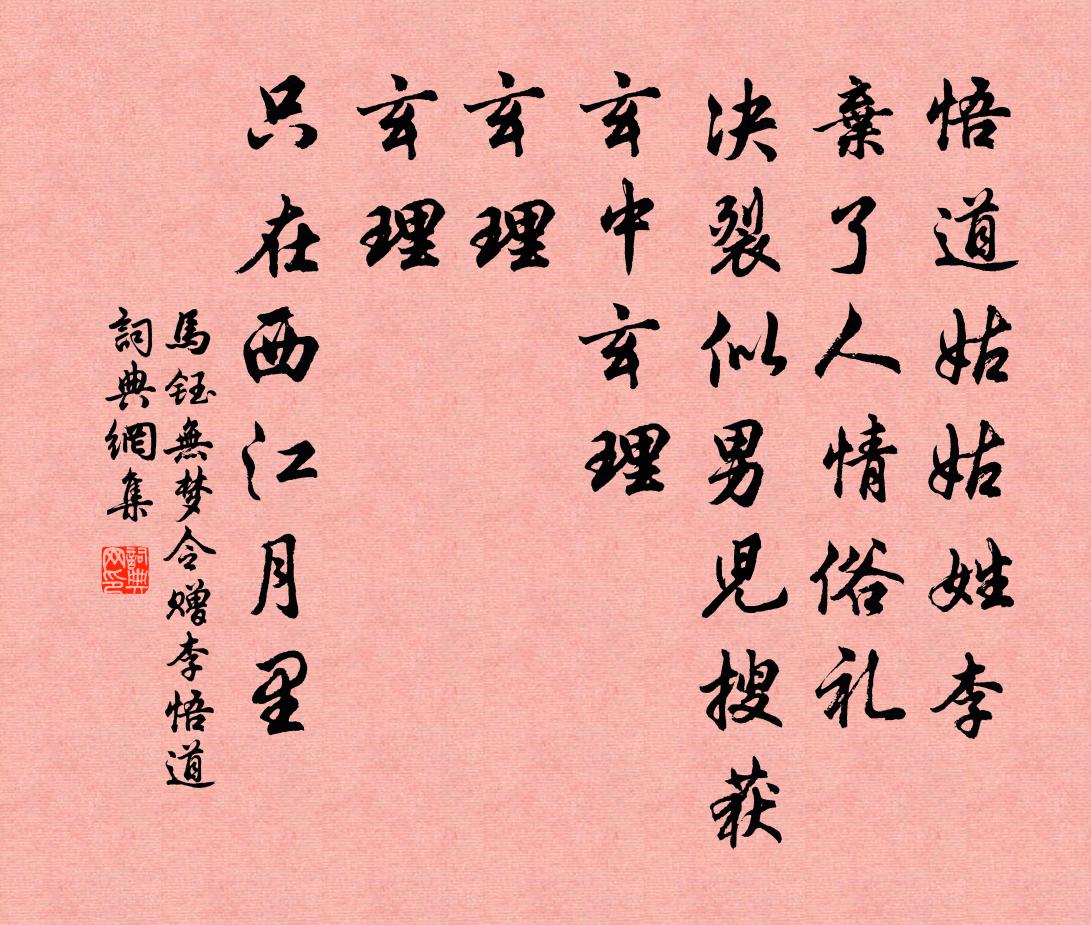 悟道姑姑姓李
棄了人情俗礼
决裂似男児搜获
玄中玄理
玄理
玄理
只在西江月里
馬鈺無梦令赠李悟道
詞典網集
詞典網印